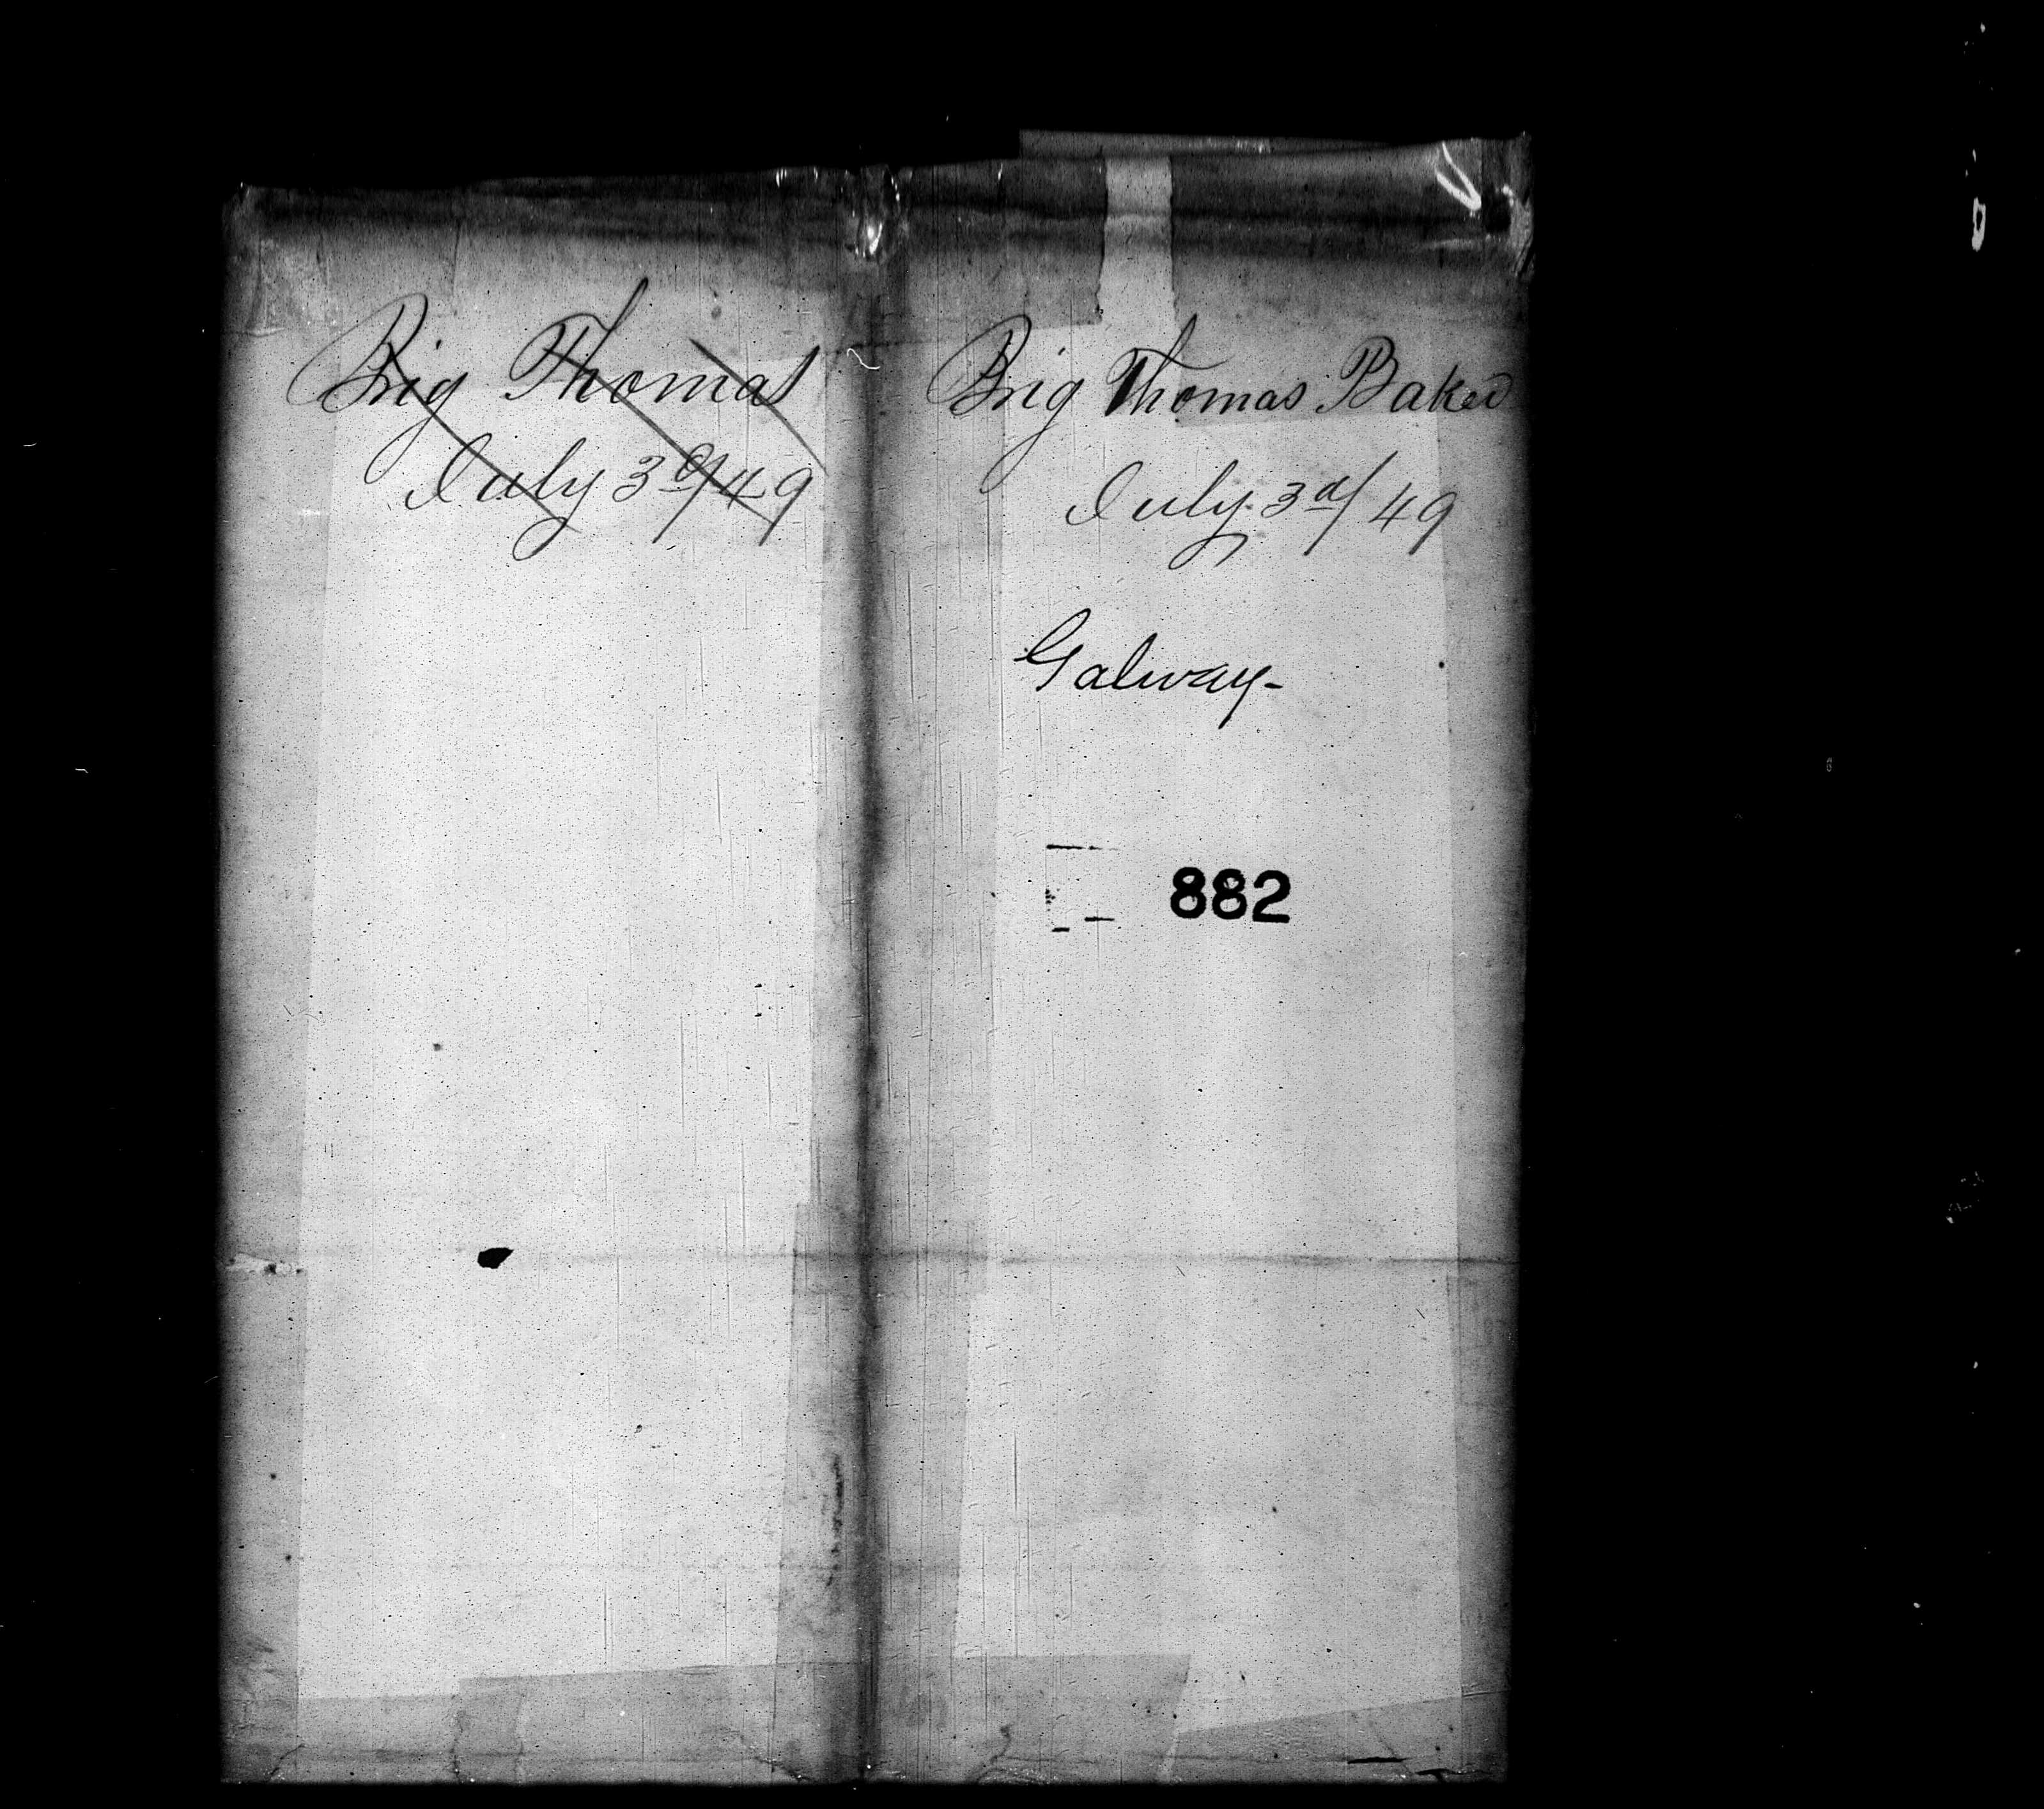 Brig Thomas
July 3d/49
Brig Thomas Baker
July 3d/49
Galway-
882